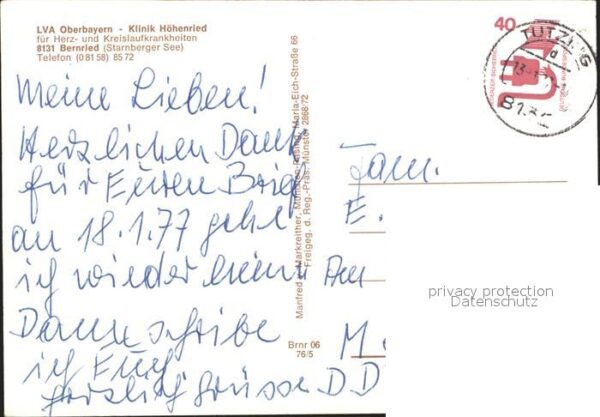 LVA Oberbayern - Klinik Höhenried
für Herz- und Kreislaufkrankheiten
8131 Bernried (Starnberger See)
Telefon (0 81 58) 85 72
Meine Lieben!
Herzlichen Dank
für Euren Brief
am 18.1.77 gehe
ich wieder heim
Dann schreibe
ich Euch
herzlich Grüsse D D
Manfred Markreither, Maria-Eich-Straße 66
Freigeg. d. Reg.-Präs. Münster 2868/72
Brnr 06
76/5
40
TUTZING
813
Fam.
E.
An
M.
privacy protection
Datenschutz